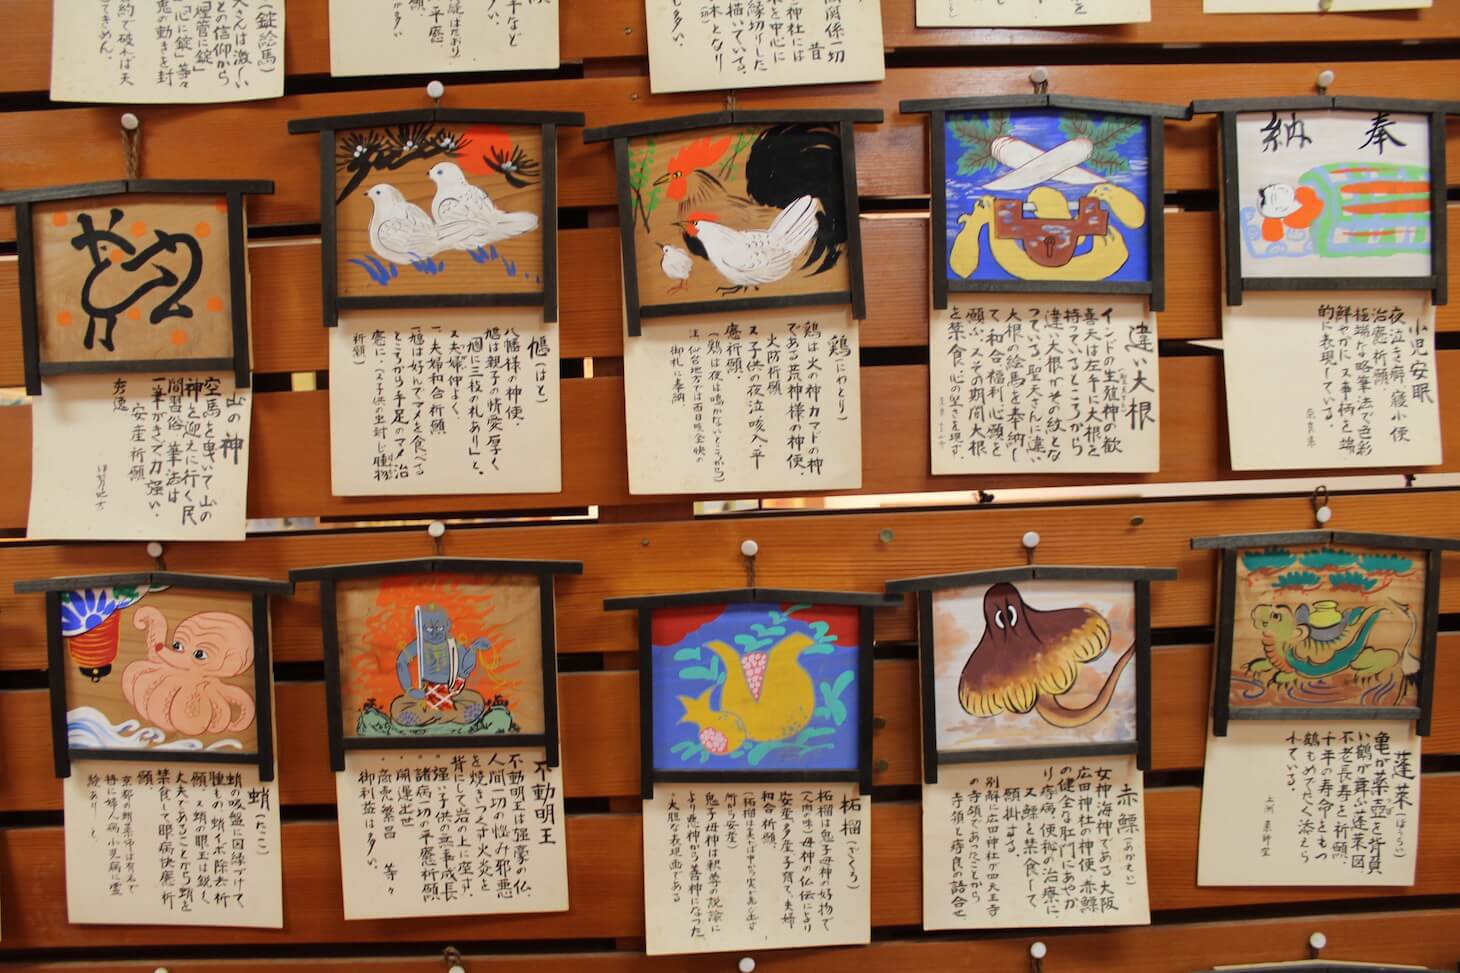 (錠絵馬)
との信仰から
「煙管に錠」
「心に錠」等々
手など
多い。
平癒、
が多い
関係一切
神社には
を中心に
縁切りした
描いている。
山の神
空馬を曳いて山の
神を迎えに行く民
間習俗 筆法は
一筆がきで力強い。
安産祈願
秀逸
鳩(はと)
八幡様の神使。
鳩は親子の情愛厚く、
「鳩に三枝の礼あり」と。
又夫婦仲よく、
一、夫婦和合祈願
一、鳩は好んでマメを食べる
ところから手足のマメ治
癒に。
祈願)
鶏(にわとり)
鶏は火の神カマドの神
である荒神様の神使。
火防祈願。
又子供の夜泣咳入平
癒祈願。
(鶏は夜は鳴かないところから)
御札に奉納。
違い大根
インドの生殖神の歓
喜天は左手に大根を
持っているところから
違い大根がその紋とな
っている。聖天さんに違い
大根の絵馬を奉納し
て和合福利、心願を
願ふ。又その期間大根
を禁食。心の堅さを現す。
奉納
小児安眠
夜泣き癖、寝小便
治癒祈願。
極端な略筆法で色彩
鮮やかに又事柄を端
的に表現している。
蛸(たこ)
蛸の吸盤に因縁づけて、
腫もの、蛸、イボ除去祈
願。又蛸の眼玉は鋭く、
丈夫であることから蛸を
禁食して眼病快癒祈
願。
京都の蛸薬師は有名で
特に婦人病、小児病に霊
不動明王
不動明王は強豪の仏、
人間一切の悩み邪悪
を焼きつくす火炎を
背にして岩の上に座す。
・強い子供の無事成長
・諸病一切の平癒祈願
・開運出世
・商売繁昌 等々
御利益は多い。
柘榴(ざくろ)
柘榴は鬼子母神の好物で
(人肉の味)母神の仏伝により
安産、多産、子育て、夫婦
和合祈願。
所から安産)
鬼子母神は釈尊の説諭に
より悪神から善神になった。
大胆な表現画である
赤鱏(あかえい)
女神海神である大阪
広田神社の神使、赤鱏
の健全な肛門にあやか
り痔病、便秘の治療に
又鱏を禁食して
願掛する。
別解に広田神社が四天王寺
の寺領であったことから
寺領と痔良の語合せ。
蓬莱(ほうらい)
亀が薬壺を背負
い鶴が舞ふ蓬莱図。
不老長寿を祈願。
千年の寿命をもつ
鶴もめでたく添えら
れている。
上州 薬師堂